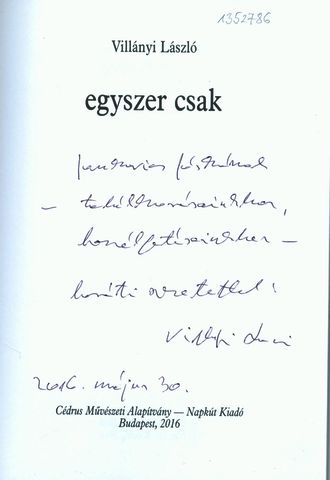 1352786
Villányi László
egyszer csak
Jankovics Józsefnek
– találkozásainkhoz,
beszélgetéseinkhez –
baráti szeretettel:
Villányi Laci
2016. május 30.
Cédrus Művészeti Alapítvány — Napkút Kiadó
Budapest, 2016